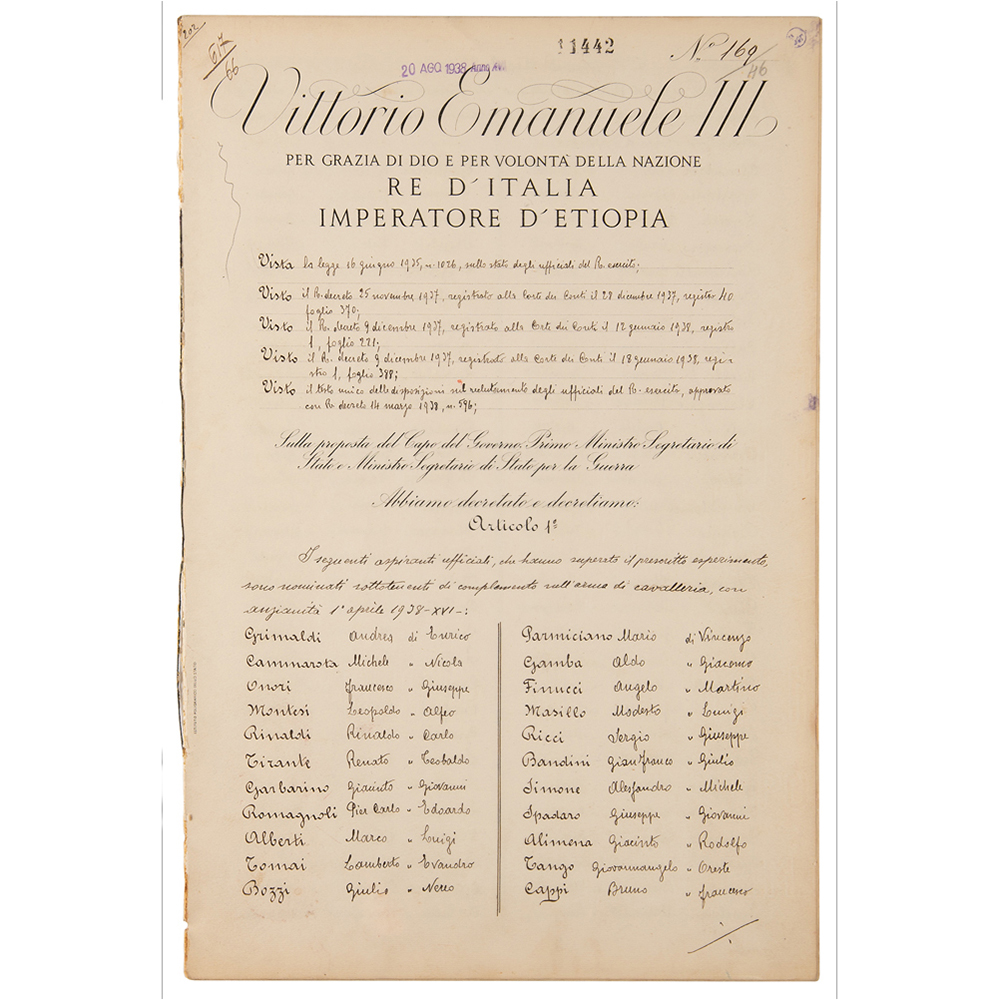 202
617
66
11442
Nº 169
46
20 AGO 1938 Anno XVI
Vittorio Emanuele III
PER GRAZIA DI DIO E PER VOLONTÀ DELLA NAZIONE
RE D'ITALIA
IMPERATORE D'ETIOPIA
Vista la legge 16 giugno 1935, n. 1026, sullo stato degli ufficiali del R. esercito;
Visto il R. decreto 25 novembre 1937, registrato alla Corte dei Conti il 28 dicembre 1937, registro 40
foglio 370;
Visto il R. decreto 9 dicembre 1937, registrato alla Corte dei Conti il 12 gennaio 1938, registro
1, foglio 221;
Visto il R. decreto 9 dicembre 1937, registrato alla Corte dei Conti il 18 gennaio 1938, regi-
stro 1, foglio 388;
Visto il testo unico delle disposizioni sul reclutamento degli ufficiali del R. esercito, approvato
con R. decreto 14 marzo 1938, n. 596;
Sulla proposta del Capo del Governo, Primo Ministro Segretario di
Stato e Ministro Segretario di Stato per la Guerra
Abbiamo decretato e decretiamo:
Articolo 1º
I seguenti aspiranti ufficiali, che hanno superato il prescritto esperimento,
sono nominati sottotenenti di complemento nell'arma di cavalleria, con
anzianità 1º aprile 1938-XVI-:
Grimaldi Andrea di Enrico
Cammarota Michele " Nicola
Onori Francesco " Giuseppe
Montesi Leopoldo " Alfeo
Rinaldi Rinaldo " Carlo
Tirante Renato " Teobaldo
Garbarino Giacinto " Giovanni
Romagnoli Pier Carlo " Edoardo
Alberti Marco " Luigi
Tomai Lamberto " Evandro
Bozzi Giulio " Nereo
Parmiciano Mario di Vincenzo
Gamba Aldo " Giacomo
Finucci Angelo " Martino
Masillo Modesto " Luigi
Ricci Sergio " Giuseppe
Bandini Gian Franco " Giulio
Simone Alessandro " Michele
Spadaro Giuseppe " Giovanni
Alimena Giacinto " Rodolfo
Tango Giovannangelo " Oreste
Cappi Bruno " Francesco